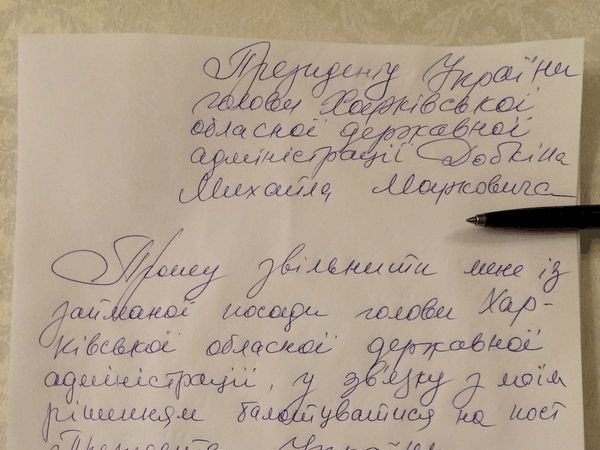 Президенту України
голови Харківської
обласної державної
адміністрації Добкіна
Михайла Марковича
Прошу звільнити мене із
займаної посади голови Хар-
ківської обласної державної
адміністрації, у зв'язку з моїм
рішенням балотуватися на пост
Президента України